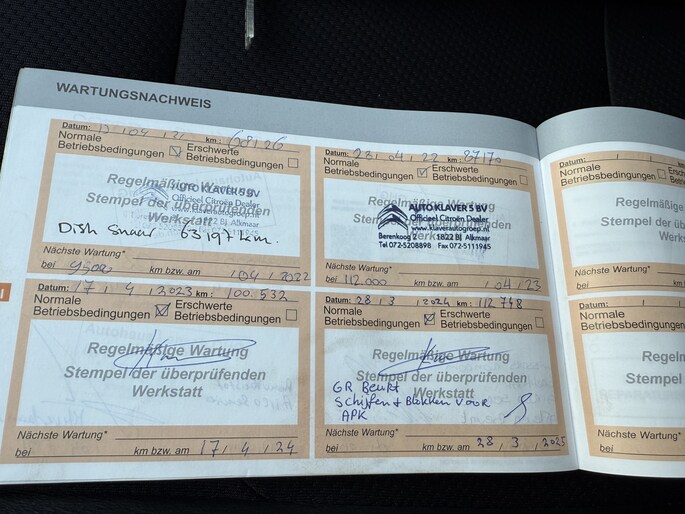 WARTUNGSNACHWEIS
Datum: 13 04 21 km: 68126
Normale Betriebsbedingungen Erschwerte Betriebsbedingungen
Regelmäßige Wartung
AUTO KLAVER 5 BV
Officieel Citroën Dealer
www.klaverautogroep.nl
Stempel der überprüfenden
Werkstatt
1822 BJ Alkmaar
63197 km.
Nächste Wartung*
bei km bzw. am 104 / 2022
Datum: 28 / 04 / 22 km: 87170
Normale Betriebsbedingungen Erschwerte Betriebsbedingungen
Regelmäßige Wartung
Stempel der überprüfenden
Werkstatt
AUTO KLAVER 5 BV
Officieel Citroën Dealer
www.klaverautogroep.nl
Berenkoog 2 1822 BJ Alkmaar
Tel 072-5208898 Fax 072-5111945
Nächste Wartung*
bei 112.000 km bzw. am / 04 / 23
Datum: 17 / 4 / 2023 km: 100.532
Normale Betriebsbedingungen Erschwerte Betriebsbedingungen
Regelmäßige Wartung
Stempel der überprüfenden
Werkstatt
Nächste Wartung*
bei km bzw. am 17 / 4 / 24
Datum: 28 / 3 / 2024 km: 112 748
Normale Betriebsbedingungen Erschwerte Betriebsbedingungen
Regelmäßige Wartung
Stempel der überprüfenden
Werkstatt
GR Beurt
Schijfen + Blokken Voor
APK
Nächste Wartung*
bei km bzw. am 28 / 3 / 2025
Datum:
Normale
Betriebsbedingungen
Regelmäßige
Stempel der
Nächste Wartung*
bei
Datum:
Normale
Betriebsbedingungen
Stempel der
Nächste Wartung*
bei